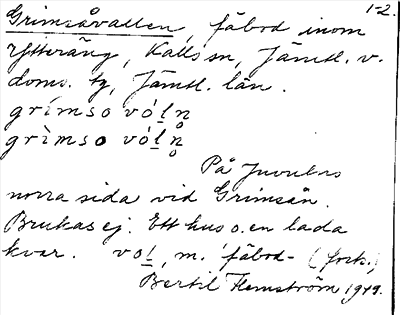 1-2.
Grimsåvallen, fäbod inom
Ytteräng, Kalls sn, Jämtl. v.
doms. tg, Jämtl. län.
grímso vó́ln
grìmso vó́ln̥
På Juvulns
norra sida vid Grimsån.
Brukas ej. Ett hus o. en lada
kvar. vol, m. 'fäbod- (fork.)
Bertil Flemström 1949.